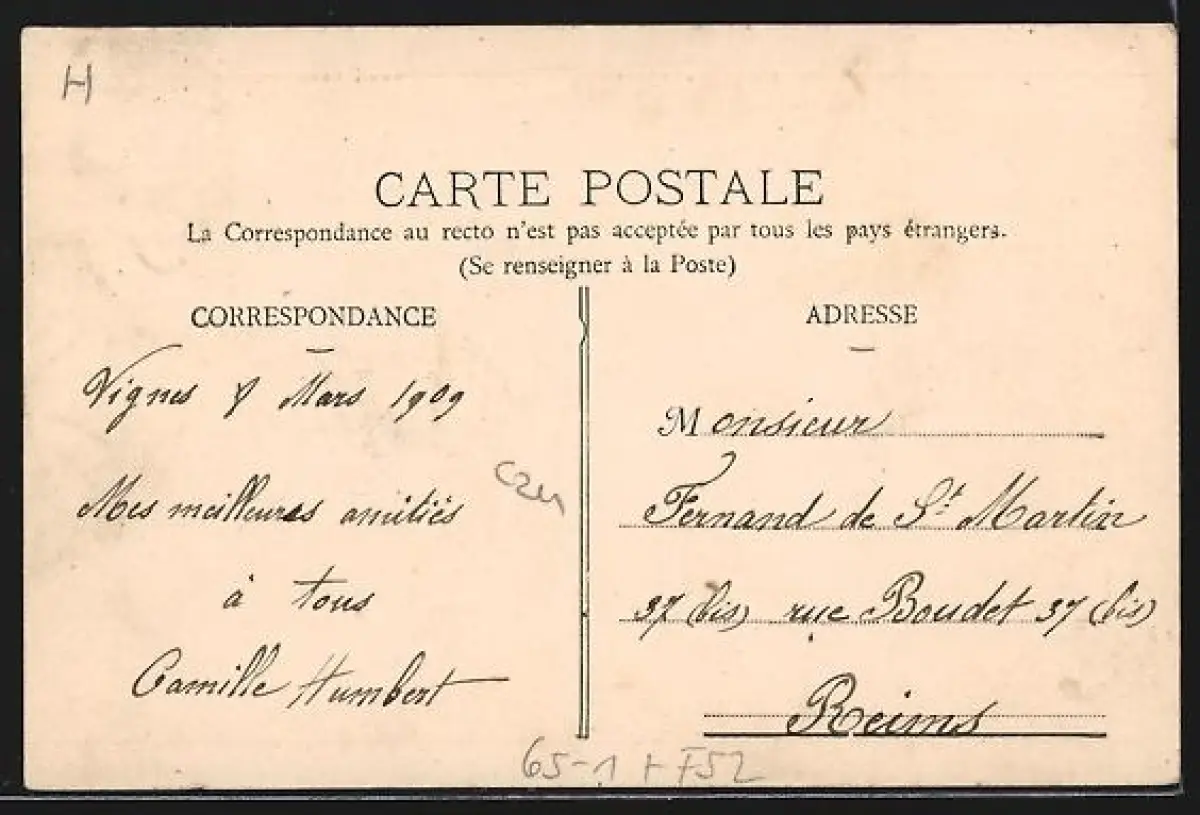 H
CARTE POSTALE
La Correspondance au recto n'est pas acceptée par tous les pays étrangers.
(Se renseigner à la Poste)
CORRESPONDANCE
Vignes 8 Mars 1909
Mes meilleures amitiés
à tous
Camille Humbert
ADRESSE
Monsieur
Fernand de St Martin
37 (bis) rue Boudet 37 (bis)
Reims
65-1 + F52